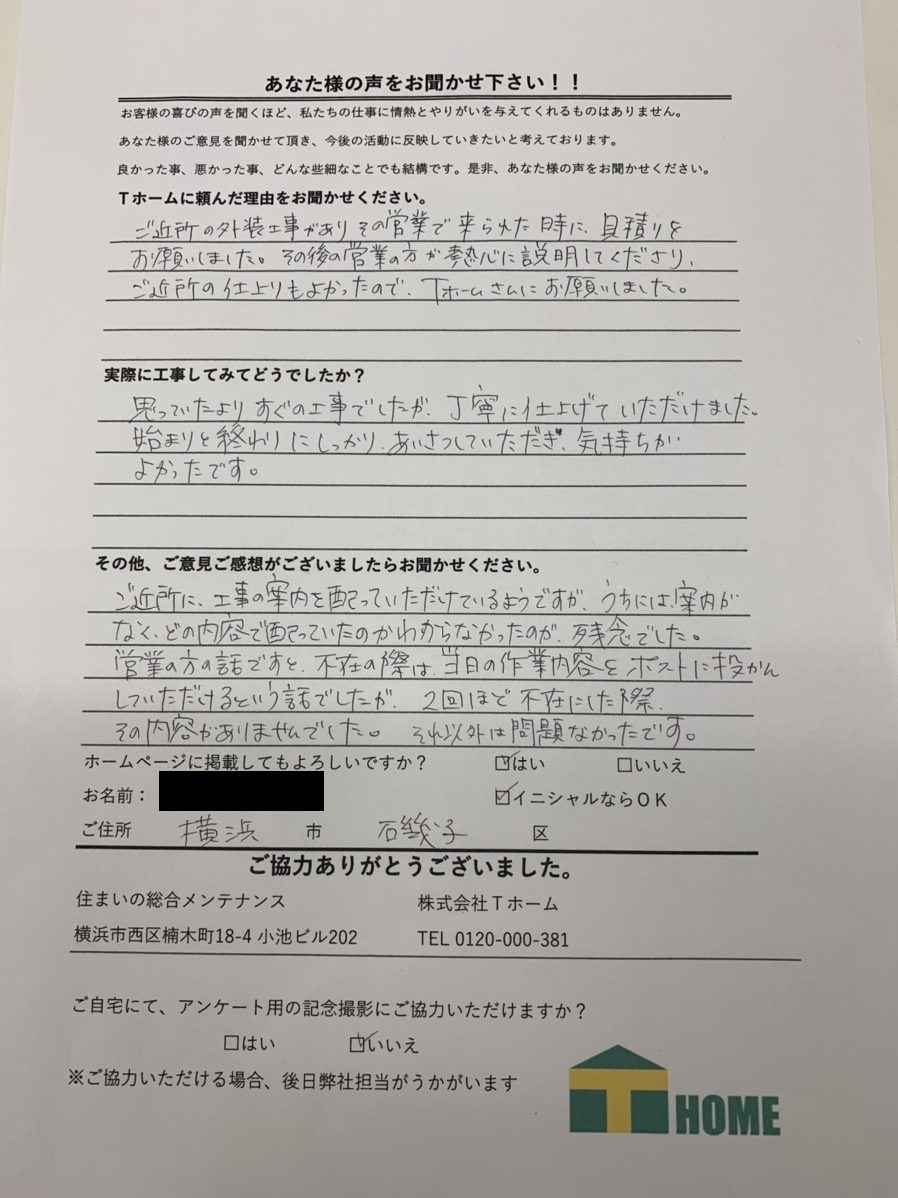 あなた様の声をお聞かせ下さい！！
お客様の喜びの声を聞くほど、私たちの仕事に情熱とやりがいを与えてくれるものはありません。
あなた様のご意見を聞かせて頂き、今後の活動に反映していきたいと考えております。
良かった事、悪かった事、どんな些細なことでも結構です。是非、あなた様の声をお聞かせください。
Ｔホームに頼んだ理由をお聞かせください。
ご近所の外装工事がありその営業で来られた時に、見積りを
お願いしました。その後の営業の方が熱心に説明してくださり、
ご近所の仕上りもよかったので、Tホームさんにお願いしました。
実際に工事してみてどうでしたか？
思っていたよりすぐの工事でしたが、丁寧に仕上げていただけました。
始まりと終わりにしっかり、あいさつしていただき、気持ちが
よかったです。
その他、ご意見ご感想がございましたらお聞かせください。
ご近所に、工事の案内を配っていただけているようですが、うちには、案内が
なく、どの内容で配っていたのかわからなかったのが、残念でした。
営業の方の話ですと、不在の際は、当日の作業内容をポストに投かん
していただけるという話でしたが、2回ほど不在にした際、
その内容がありませんでした。それ以外は問題なかったです。
ホームページに掲載してもよろしいですか？ ☑はい □いいえ
お名前： ☑イニシャルならＯＫ
ご住所 横浜 市 磯子 区
ご協力ありがとうございました。
住まいの総合メンテナンス 株式会社Ｔホーム
横浜市西区楠木町18-4 小池ビル202 TEL 0120-000-381
ご自宅にて、アンケート用の記念撮影にご協力いただけますか？
□はい ☑いいえ
※ご協力いただける場合、後日弊社担当がうかがいます
T HOME